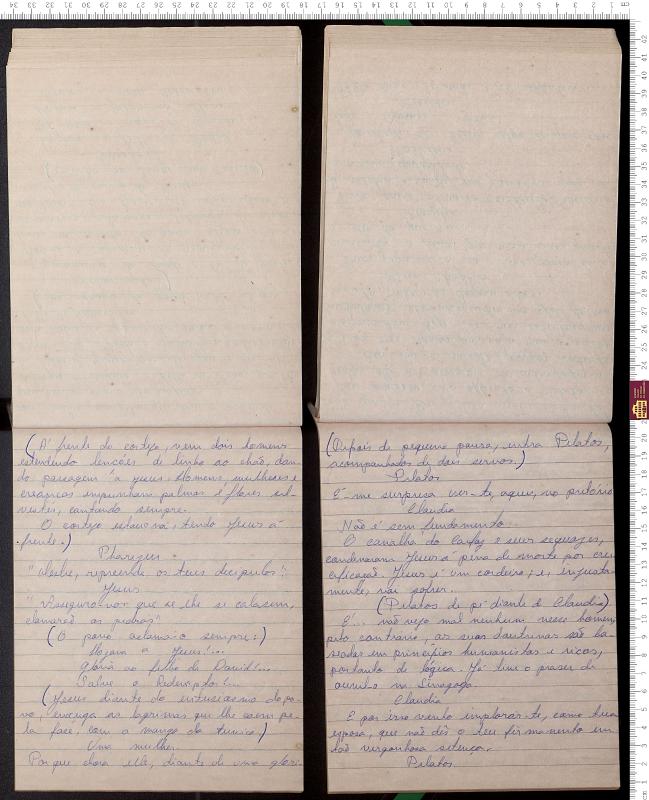 (A' frente do cortejo, vem dois homens
estendendo lençóes de linho ao chão, dan-
do passagem á Jesus. Homens, mulheres e
creanças empunham palmas e flôres sil-
vestres, cantando sempre.
O cortejo estaciona, tendo Jesus á
frente.)
Phariseu
"Mestre, repreende os teus discipulos"!
Jesus
"Asseguro-vos que se eles se calassem,
clamarão as pedras"
(O povo aclama-o sempre:)
Hozana a Jesus!...
Glória ao filho de David!...
Salve o Redemptor!...
(Jesus diante do entusiasmo do po-
vo, enxuga as lagrimas que lhe caem pe-
la face, com a manga da tunica)
Uma mulher.
Porque chora elle, diante de uma glori-
(Depois de pequena pausa, entra Pilatos,
acompanhados de dois servos.)
Pilatos
É-me surpresa ver-te, aqui, no pretório
Claudia
Não é sem fundamento.
O canalha do Caifaz e seus sequazes,
condenaram Jesus á pena de morte por cru
cificação. Jesus é um cordeiro; e, injusta-
mente, vai sofrer.
(Pilatos de pé diante de Claudia)
E... não vejo mal nenhum nesse homem
pelo contrario, as suas doutrinas são ba-
seadas em principios humanistas e ricos,
portanto de lógica. Já tive o praser de
ouvil-o na Sinagoga.
Claudia
E por isso venho implorar-te, como tua
esposa, que não dês o teu firmamento em
tão vergonhosa sentença.
Pilatos.